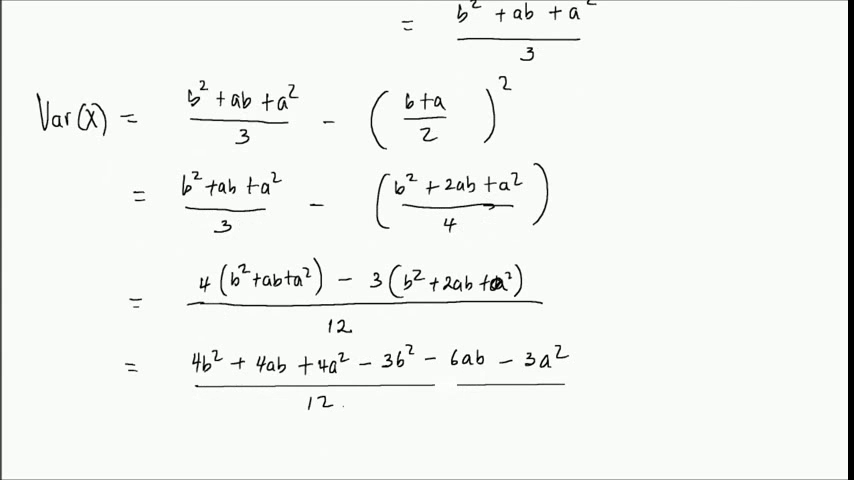 = b² + ab + a² / 3
Var(X) = b² + ab + a² / 3 − ( b+a / 2 )²
= b² + ab + a² / 3 − ( b² + 2ab + a² / 4 )
= 4(b² + ab + a²) − 3(b² + 2ab + a²) / 12
= 4b² + 4ab + 4a² − 3b² − 6ab − 3a² / 12